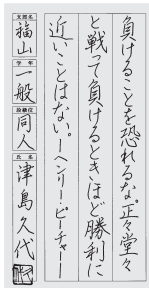 負けることを恐れるな。正々堂々
と戦って負けるときほど勝利に
近いことはない。ーヘンリー・ビーチャーー
支部名
福山
学年
一般
段級位
同人
氏名
津島久代